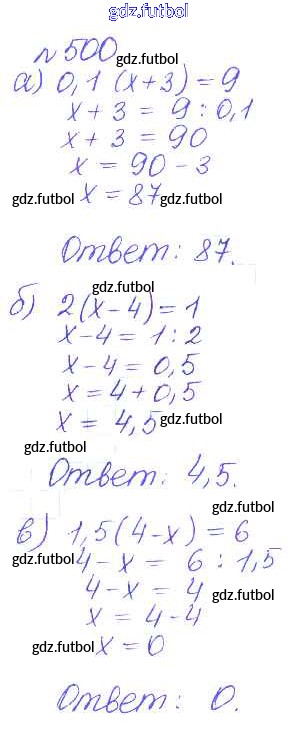 gdz.futbol
№500 gdz.futbol
а) 0,1 (x+3) = 9
x + 3 = 9 : 0,1
x + 3 = 90
x = 90 - 3
gdz.futbol x = 87 gdz.futbol
Ответ: 87.
gdz.futbol
б) 2(x-4) = 1
x-4 = 1 : 2
x-4 = 0,5
x = 4 + 0,5
x = 4,5 gdz.futbol
gdz.futbol
Ответ: 4,5.
в) 1,5(4-x) = 6
gdz.futbol 4 - x = 6 : 1,5
4 - x = 4 gdz.futbol
x = 4-4
gdz.futbol x = 0
Ответ: 0.
gdz.futbol